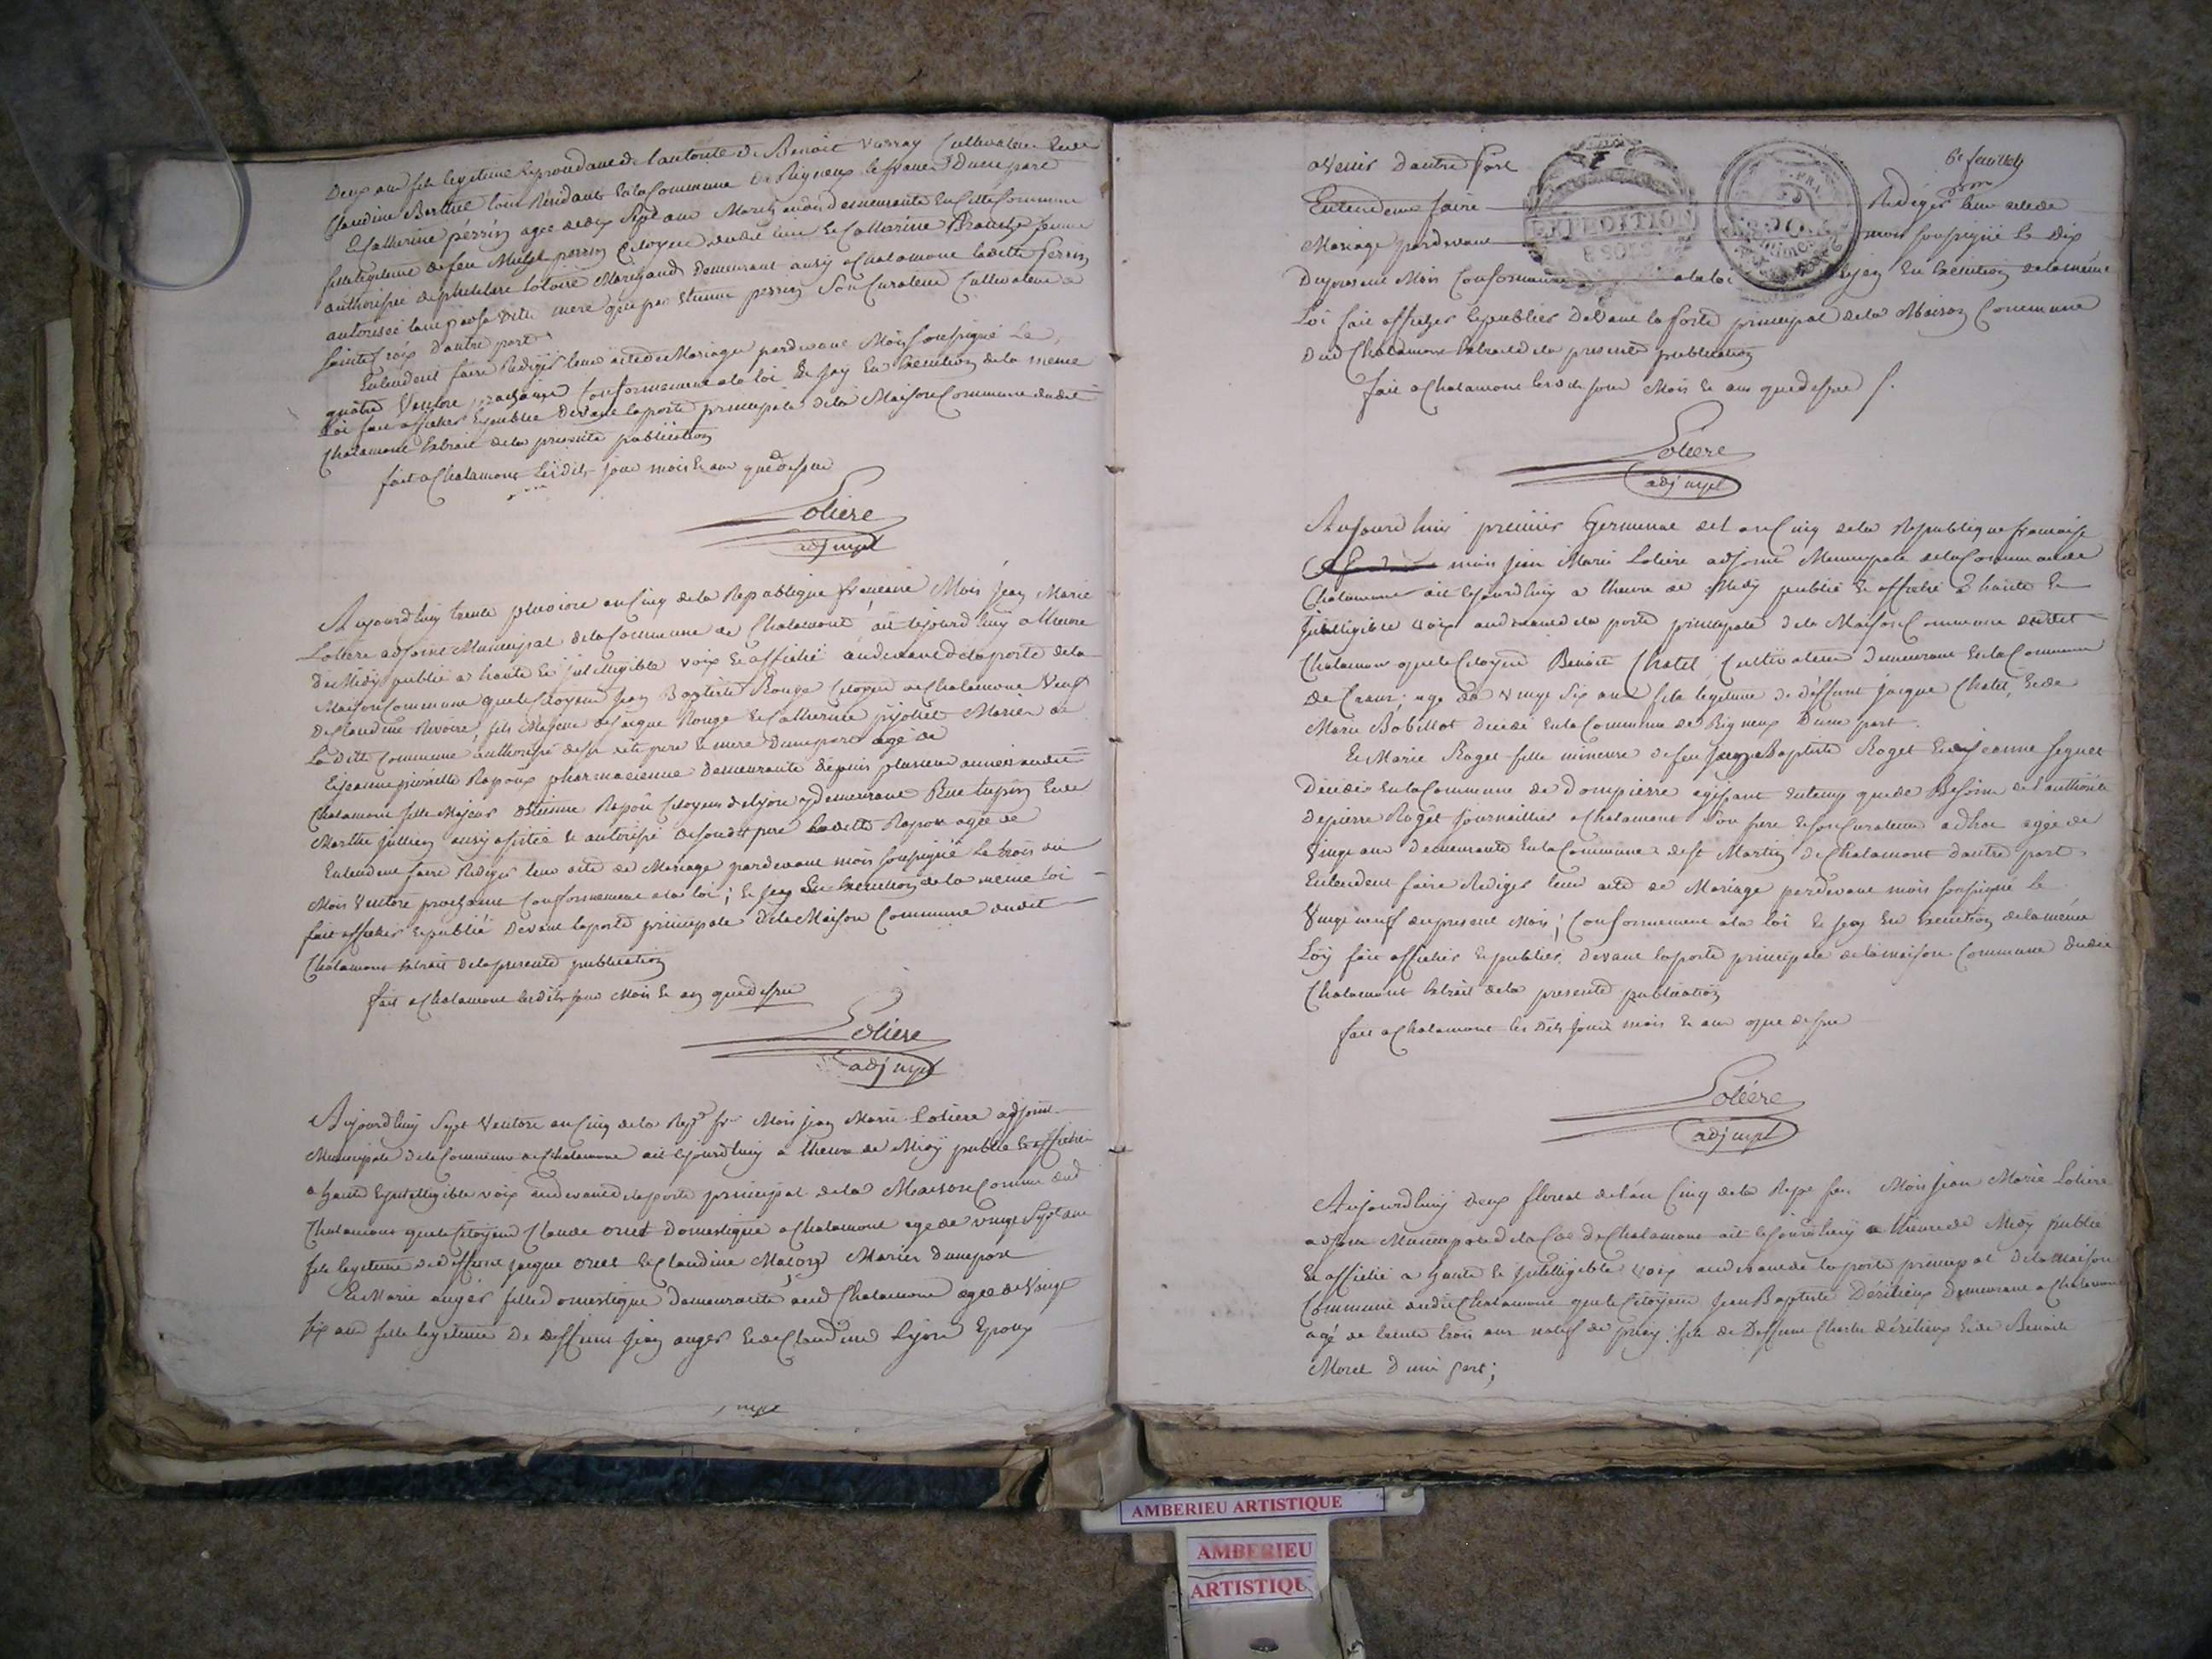 Deux ans fils legitime dependant de l'autorité de Benoit Varray Cultivateur Et de
Claudine Berthet tous Résidants En la Commune de Rigneux le franc D'une part
Et Catherine périsin agée de dix Sept ans demeurante En cette Commune
fille legitime de feu perrin Citoyen dudit lieu Et Catherine femme
authorisée de Lotoire Marchand demeurant aussy a Chalamont ladite perrin
autorisée tant par sa dite mere que par Etienne perrin Son Curateur Cultivateur a
Sainte Croix d'autre part
Entendent faire Rediger leur acte de Mariage pardevant Moi Soussigné Le
quatre Ventose prochain Conformement a la loi Et jay En Execution de la meme
Loi fait afficher Et publié Devant la porte principale de la Maison Commune dudit
Chalamont Extrait de la presente publication
fait a Chalamont les dits jour mois Et an que dessus
Loliere
adj mpl
Aujourd'huy trente pluviose an Cinq de la Republique française Moi Jean Marie
Loliere adjoint Municipal de la Commune de Chalamont ait cejourd'huy a l'heure
de Midy publié a haute Et jntelligible voix Et affiché audevant de la porte de la
Maison Commune que le Citoyen Jean Baptiste Rouge Citoyen de Chalamont Veuf
de Claudine Revoire, fils Majeur de Jacque Rouge Et Catherine pijollet Mariés de
La dite Commune authorisé de ses dits pere Et mere D'une part agé de
Et jeanne Rapoux pharmacienne Demeurante depuis plusieurs années audit
Chalamont fille Majeur d'Etienne Rapoux Citoyen de Lyon y demeurant Rue tupin Et de
Marthe jullien aussy assistée Et autorisé de son dit pere ladite Rapoux agée de
Entendent faire Rediger leur acte de Mariage pardevant moi Soussigné Le trois du
Mois Ventose prochain Conformement a la loi; Et jay En Execution de la meme loi
fait afficher Et publié Devant la porte principale de la Maison Commune dudit
Chalamont Extrait de la presente publication
fait a Chalamont les dits jour Mois Et an que dessus
Loliere
adj mpl
Aujourd'huy Sept Ventose an Cinq de la Rep fr Moi jean Marie Loliere adjoint
Municipale de la Commune de Chalamont ait cejourd'huy a l'heure de Midy publié Et affiché
a haute Et jntelligible voix audevant de la porte principal de la Maison Comune dud
Chalamont que le Citoyen Claude oruet Domestique a Chalamont agé de vingt Sept ans
fils legitime de deffunt jacque oruet Et Claudine Maçon Mariés d'une part
Et Marie auger fille domestique Demeurante aud Chalamont agée de Vingt
Six ans fille legitime De deffunt jean auger Et de Claudine Lyon Epoux
mpl
6e feuillet
avenir d'autre part
Entendent faire Rédiger leur acte de
Mariage pardevant moi soussigné Le Dix
Du present Mois Conformement a la loi Et jay En Execution de la même
Loi fait afficher Et publier Devant la porte principal de la Maison Commune
Dud Chalamont Extrait de la presente publication
fait a Chalamont les dits jour Mois Et an que dessus
EXPEDITION
8 SOLS
Loliere
adj mpl
Aujourd'huy premier Germinal de l'an Cinq de la Republique française
moi jean Marie Loliere adjoint Municipale de la Commune de
Chalamont ait cejourd'huy a l'heure de Midy publié Et affiché a haute Et
jntelligible voix audevant de la porte principale de la Maison Commune dudit
Chalamont que le Citoyen Benoit Chatel Cultivateur Demeurant En la Commune
de Crans; agé de vingt Six ans fils legitime de deffunt jacque Chatel, Et de
Marie Bobillot décédé En la Commune de Rigneux D'une part
Et Marie Roget fille mineure de feu Baptiste Roget Et de jeanne Seguet
Décédés En la Commune de Dompierre agissant En tant que de Besoin de l'authorité
de pierre Roget journaillier a Chalamont Son frere Et Son Curateur adhoc agée de
Vingt ans demeurante En la Commune de St Martin de Chalamont d'autre part
Entendent faire Rediger leur acte de Mariage pardevant moi soussigné Le
Vingt neuf du present Mois; Conformement a la loi Et jay En Execution de la même
Loy fait afficher Et publier Devant la porte principale de la maison Commune dudit
Chalamont Extrait de la presente publication
fait a Chalamont les dits jour mois Et an que dessus
Loliere
adj mpl
Aujourd'huy Deux floreal de l'an Cinq de la Repe fse Moi Jean Marie Loliere
adjoint Municipale de la Cne de Chalamont ait cejourd'huy a l'heure de Midy publié
Et affiché a haute Et jntelligible voix audevant de la porte principal de la Maison
Commune dudit Chalamont que le Citoyen Jean Baptiste Désilieux Demeurant a Chalamont
agé de trente trois ans natif de fils de Deffunt Charles désilieux Et de Benoite
Morel d'une part;
AMBERIEU ARTISTIQUE
AMBERIEU
ARTISTIQU